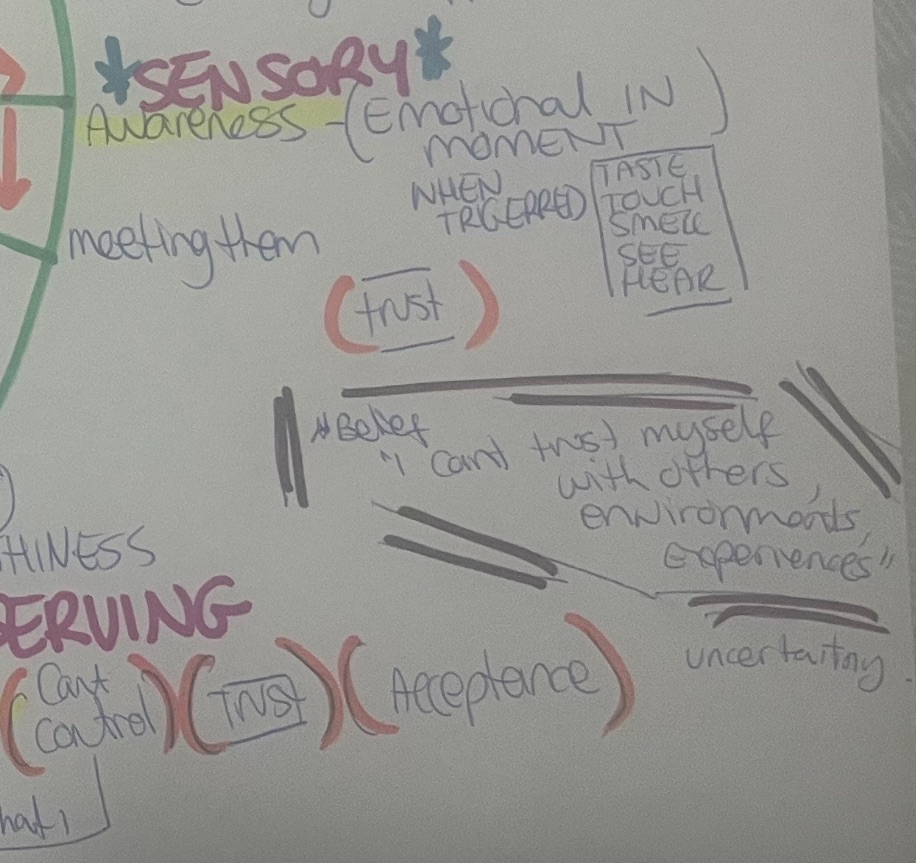 *SENSORY*
Awareness - (Emotional IN
MOMENT)
WHEN
TRIGERRED
TASTE
TOUCH
SMELL
SEE
HEAR
meeting them
(trust)
*Belief
"I cant trust myself
with others,
environments,
Experiences"
uncertaitny.
HINESS
ERVING
(Cant
Control) (Trust) (Acceptance)
hat I